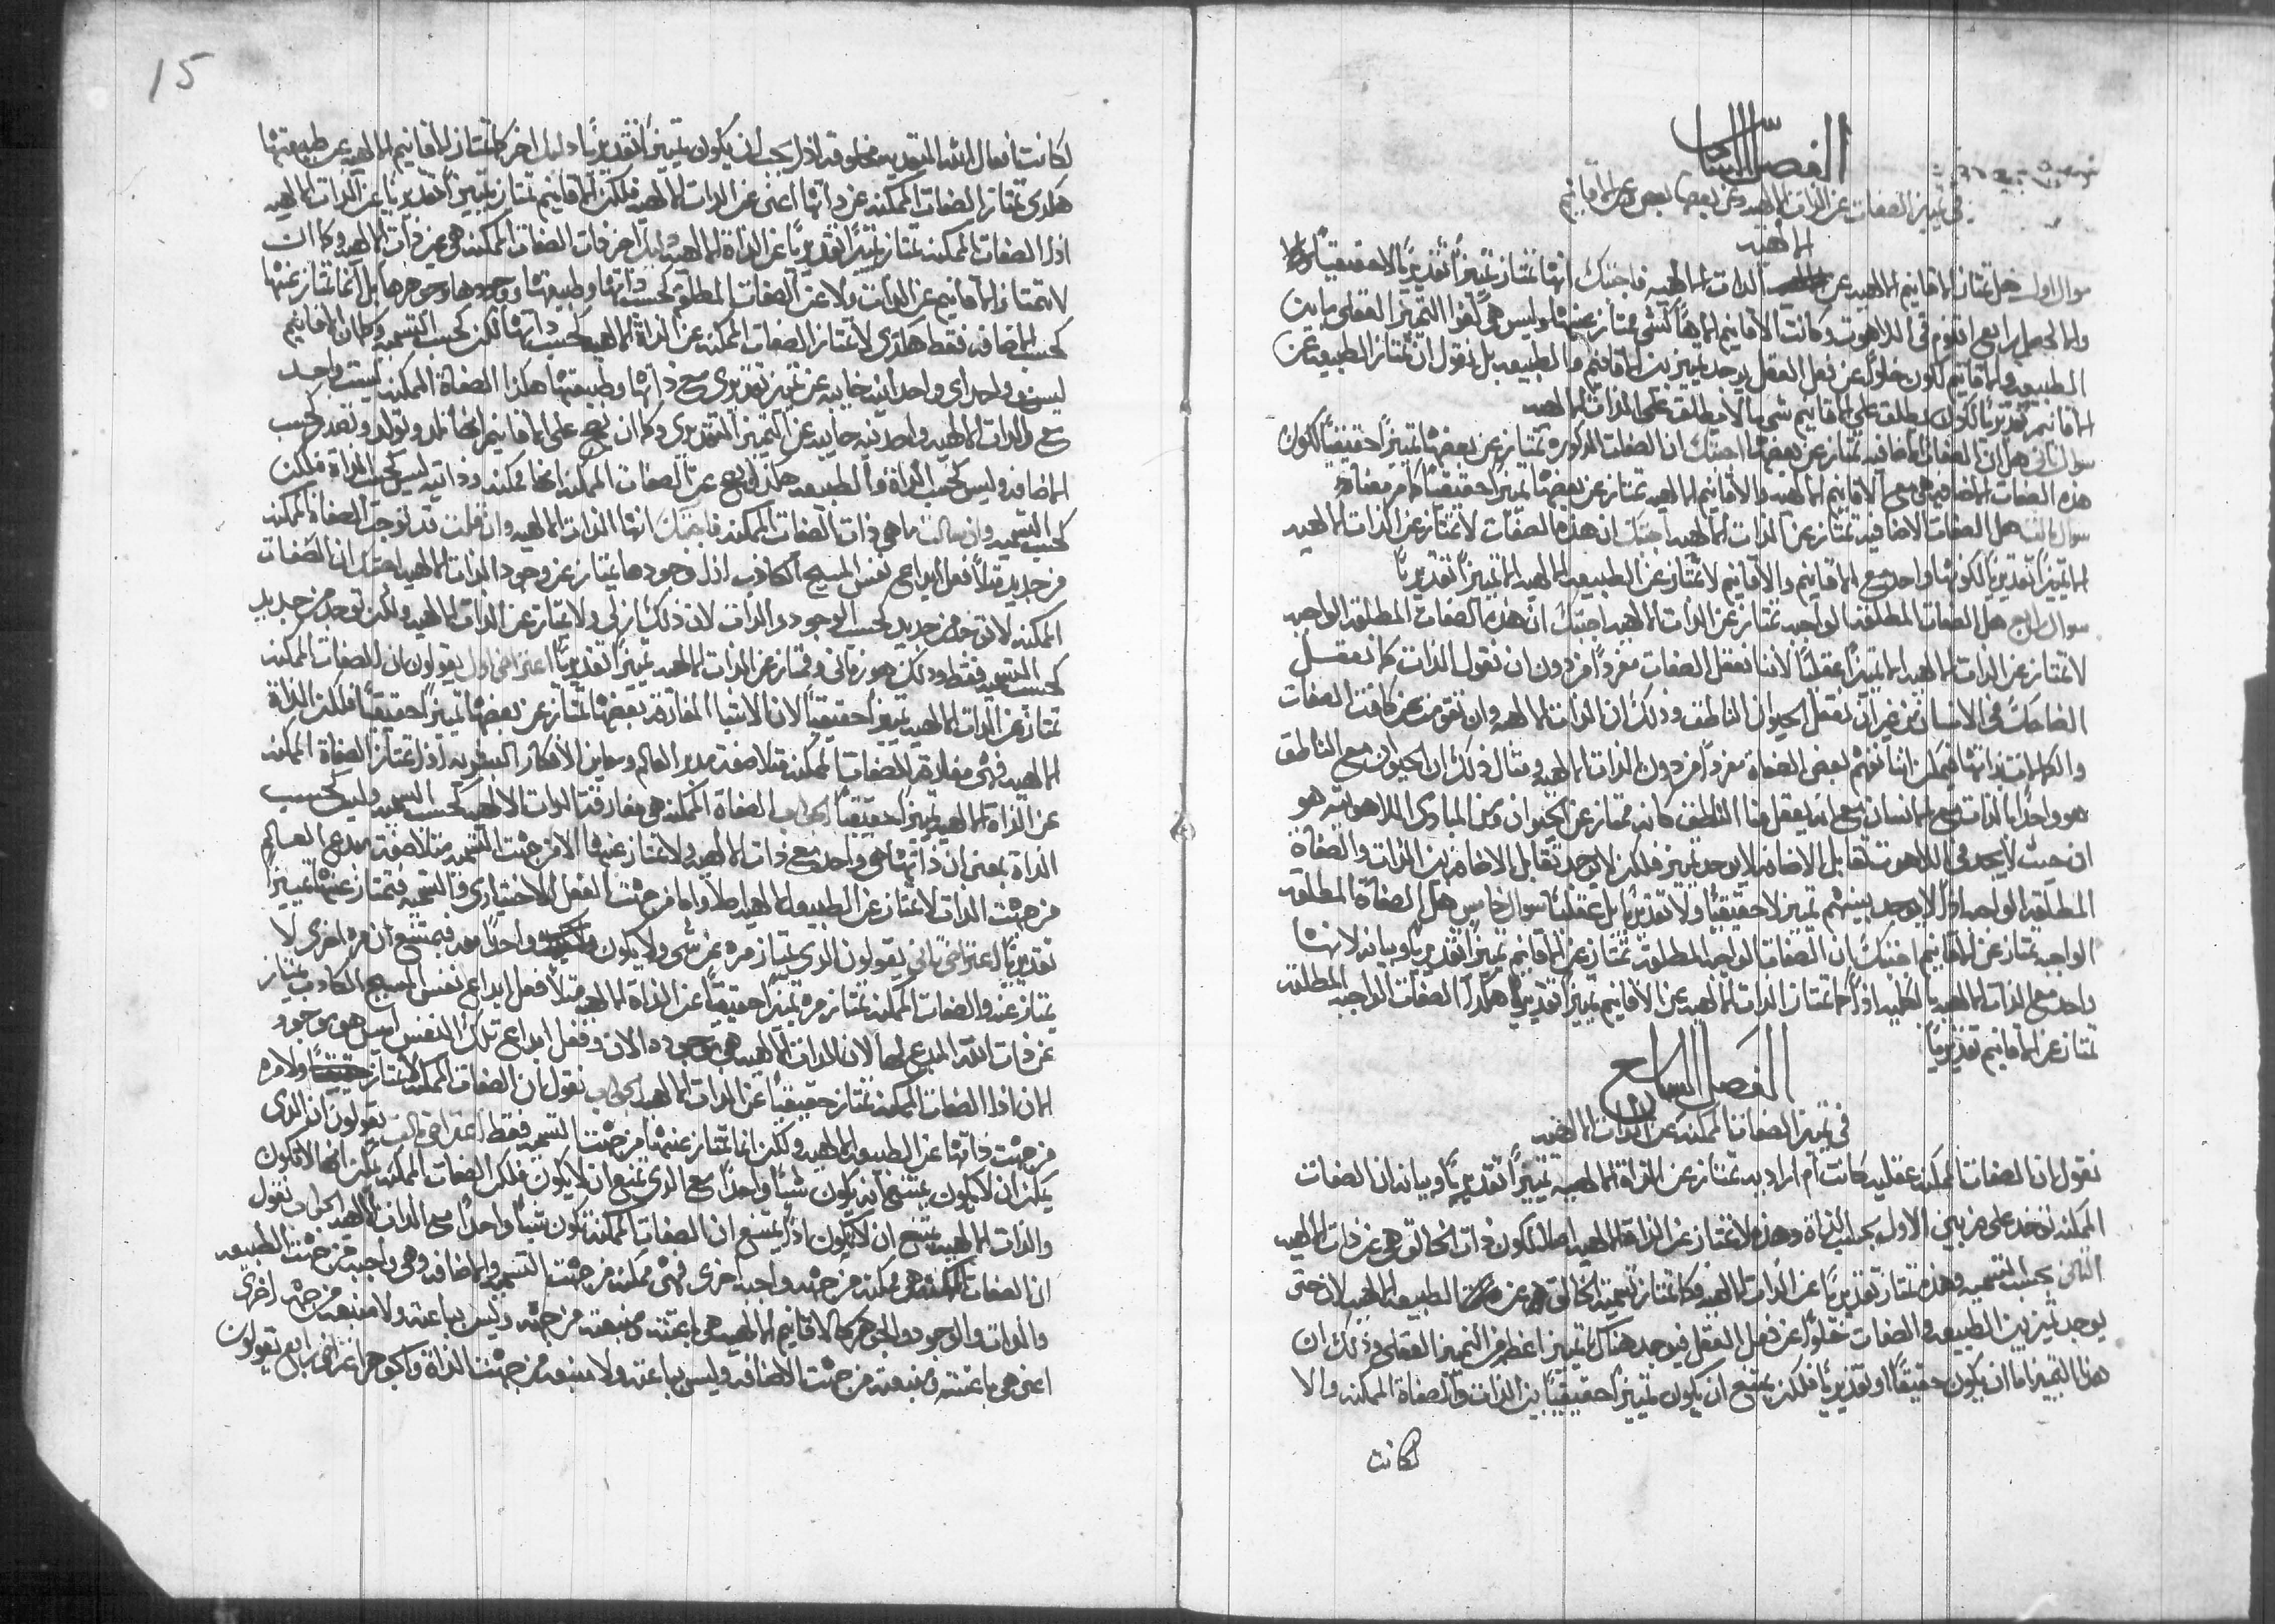 الفصل السادس
في تمييز الصفات عن الذات الالهيه وعن بعضها بعض وعن الاقانيم
الالهيه
سوال اول هل تمتاز الاقانيم الالهيه عن الذات الالهيه فاجبتك انها تمتاز تميزاً تقديريًا لا حقيقيًا والا
والا لحصل رابع اقنوم في اللاهوت وكانت الاقانيم الاهًا كشي ممتاز عنها وليس هي الهوا التميز العقلي ما بين
الطبيعه والاقانيم لكون خلوًا عن فعل العقل يوجد تمييز بين الاقانيم والطبيعه بل نقول ان تمتاز الطبيعه عن
الاقانيم تقديريًا لكون يطلق على الاقانيم شي ما لا يطلق على الذات الالهيه
سوال ثاني هل ان الصفات الاضافيه تمتاز عن بعضها اجبتك ان الصفات المذكوره تمتاز عن بعضها تمييزًا حقيقيًا لكون
هذه الصفات الاضافيه هي مع الاقانيم الالهيه والاقانيم الالهيه تمتاز عن بعضها تميزًا حقيقيًا كما مر معناه
سوال ثالث هل الصفات الاضافيه تمتاز عن الذات الالهيه اجبتك ان هذه الصفات لا تمتاز عن الذات الالهيه
الا تميزًا تقديريًا لكونها واحد مع الاقانيم والاقانيم لا تمتاز عن الطبيعه الالهيه الا تميزًا تقديريًا
سوال رابع هل الصفات المطلقه الواجبه تمتاز عن الذات الالهيه اجبتك ان هذه الصفات المطلقه الواجبه
لا تمتاز عن الذات الالهيه الا تميزًا عقليًا لاننا نعقل الصفات مفردًا من دون ان نقول الذات كما نعقل
الضاحك في الانسان من غير ان نعقل الحيوان الناطق وذلك ان الذات الالهيه وان تقومت عن كافت الصفات
والكمالات بذاتها فيمكن اننا نفهم بعض الصفاة مفردًا من دون الذات الالهيه ومثال ذلك ان الحيوان مع الناطق
هو واحدًا بالذات مع الانسان مع انه يعقل منا الناطق كانه ممتاز عن الحيوان ومن المبادي اللاهوتيه هو
ان حيث لا يوجد في اللاهوت تقابل الاضافه لا يوجد تميز فلكن لا يوجد تقابل الاضافه بين الذات والصفاة
المطلقه الواجبه اذًا لا يوجد بينهم تميز لا حقيقيًا ولا تقديريًا بل عقليًا سوال خامس هل الصفاة المطلقه
الواجبه تمتاز عن الاقانيم اجبتك ان الصفات الواجبه المطلقه تمتاز عن الاقانيم تميزًا تقديريًا وبيانه لانها
واحد مع الذات الالهيه بالكليه اذًا كما تمتاز الذات الالهيه عن الاقانيم تميزًا تقديريًا هكذا الصفات الواجبه المطلقه
تمتاز عن الاقانيم تقديريًا
الفصل السابع
في تميز الصفات الممكنه عن الذات الالهيه
نقول ان الصفات الممكنه عقليه كانت ام اراديه تمتاز عن الذاة الالهيه تمييزًا تقديريًا وبيانه ان الصفات
الممكنه توخد على ضربين الاول بحسب الذاة وهذه لا تمتاز عن الذاة الالهيه اصلا لكون ذات الخالق هي عين ذات الالهيه
الثاني بحسب التسميه وهذه تمتاز تقديريًا عن الذات الالهيه وكما تمتاز تسمية الخالق عن الطبيعه الالهيه لان حتى
يوجد تميز بين الطبيعه والصفات خلوًا عن فعل العقل فيوجد هناك تمييز اعظم من التميز العقلي وذلك ان
هذا التميز اما ان يكون حقيقيًا او تقديريًا فلكن يمتنع ان يكون تمييزًا حقيقيًا بين الذات والصفاة الممكنه والا
لكانت
15
لكانت افعال الله التقديميه مخلوقه اذًا يجب ان يكون تمييزًا تقديريًا دليل اخر كما تمتاز الاقانيم الالهيه عن طبيعتها
هكذي تمتاز الصفات الممكنه عن ذاتها اعني عن الذات الالهيه فلكن الاقانيم تمتاز تمييزًا تقديريًا عن الذات الالهيه
اذًا الصفات الممكنه تمتاز تميزًا تقديريًا عن الذاة الالهيه دليل اخر ذات الصفات الممكنه هي عين ذات الالهيه وكما ان
لا تمتاز الاقانيم عن الذات ولا عن الصفات المطلقه بحسب ذاتها وطبيعتها ووجودها وجوهرها بل انما تمتاز عنها
بحسب الاضافه فقط هكذي لا تمتاز الصفات الممكنه عن الذاة الالهيه بحسب ذاتها لكن بحسب التسميه وكما ان الاقانيم
ليس هو واحد اي واحدانيه خاليه عن تميز تقديري مع ذاتها وطبيعتها هكذا الصفاة الممكنه ليست واحد
مع الذات الالهيه واحدنيه خاليه عن التميز التقديري وكما ان يصح على الاقانيم انها تلد وتولد وتصدر بحسب
الاضافه وليس بحسب الذاة والطبيعه هكذا يصح عن الصفات الممكنه انها ممكنه وذاتيه ليس بحسب الذاة فلكن
بحسب التسميه وان سالت ما هي ذات الصفات الممكنه فاجبتك انها الذات الالهيه وان قلت قد توجد الصفاة الممكنه
من جديد مثلًا فعل ابداع نفس المسيح الكاذب اذًا وجودها يمتاز عن وجود الذات الالهيه اجبتك ان الصفات
الممكنه لا توخذ من جديد بحسب الوجود والذات لان ذلك ازلي ولا يمتاز عن الذات الالهيه ولكن توجد من جديد
بحسب التسميه فقط وذلك هو زماني ويمتاز عن الذات الالهيه تميزًا تقديريًا اعتراض اول يقولون ان الصفات الممكنه
تمتاز عن الذات الالهيه تميزًا حقيقيًا لان الاشيا المفارقه بعضها تمتاز عن بعضها تميزًا حقيقيًا فلكن الذاة
الالهيه فهي مفارقه الصفات الممكنه مثلا صفة مدبر العالم ومعاين الافكار البشريه اذًا تمتاز الصفاة الممكنه
عن الذاة الالهيه تميزًا حقيقيًا الجواب الصفاة الممكنه هي مفارقة الذات الالهيه بحسب التسميه وليس بحسب
الذاة بمعنى ان ذاتها هي واحد مع ذات الالهيه ولا تمتاز عنها الا من جهت التسميه مثلًا صفة مبدع العالم
من جهت الذات لا تمتاز عن الطبيعه الالهيه اصلًا واما من جهت الفعل الاختياري والتسميه فتمتاز عنها تمييزًا
تقديريًا اعتراض ثاني يقولون الذي يمتاز مره عن شي ولا يكون واحدًا معه فيمتنع ان مره اخرى لا
يمتاز عنه والصفات الممكنه تمتاز مره تميزًا حقيقيًا عن الذاة الالهيه مثلًا فعل ابداع نفس المسيح الكاذب يمتاز
عن ذات الله المبدع لها لان الذات الالهيه هي موجوده الان وفعل ابداع تلك النفس ليس هو موجود
الان اذا الصفات الممكنه تمتاز حقيقيًا عن الذات الالهيه الجواب نقول ان الصفات الممكنه لا تمتاز ولا مره
من جهت ذاتها عن الطبيعه الالهيه ولكن انما تمتاز عنها من جهت التسميه فقط اعتراض ثالث يقولون ان الذي
يمكن ان لا يكون يمتنع انه يكون شيًا واحدًا مع الذي يمتنع ان لا يكون فلكن الصفات الممكنه يمكن انها لا تكون
والذات الالهيه يمتنع ان لا تكون اذًا يمتنع ان الصفات الممكنه تكون شيًا واحدًا مع الذات الالهيه الجواب نقول
ان الصفات الممكنه هي ممكنه من جهة وواجبه اخرى فهي ممكنه من جهت التسميه والاضافه وهي واجبه من جهت الطبيعه
والذات والوجود والجوهر كالاقانيم الالهيه هي باعثه ومنبعثه من جهه وليس بباعثه ولا منبعثه من جهه اخرى
اعني هي باعثه ومنبعثه من جهت الاضافه وليس بباعثه ولا منبعثه من جهت الذاة والجوهر اعتراض رابع يقولون